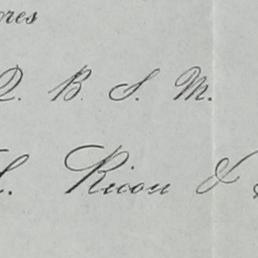 ores
Q. B. S. M.
L. Ricou &